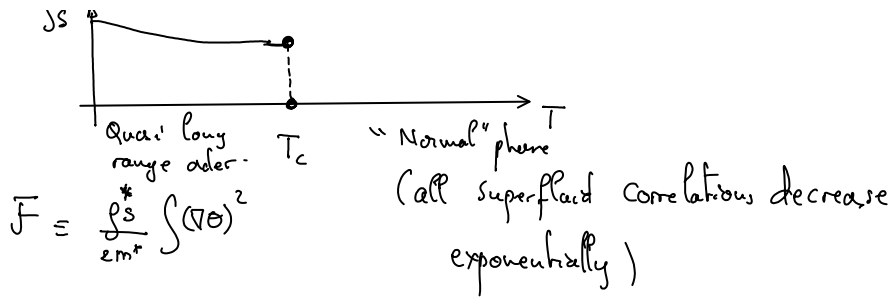 ρS
T
Quasi long
range order.
Tc
"Normal" phase
(all superfluid correlations decrease
exponentially)
F = ρs*/2m* ∫(∇θ)²